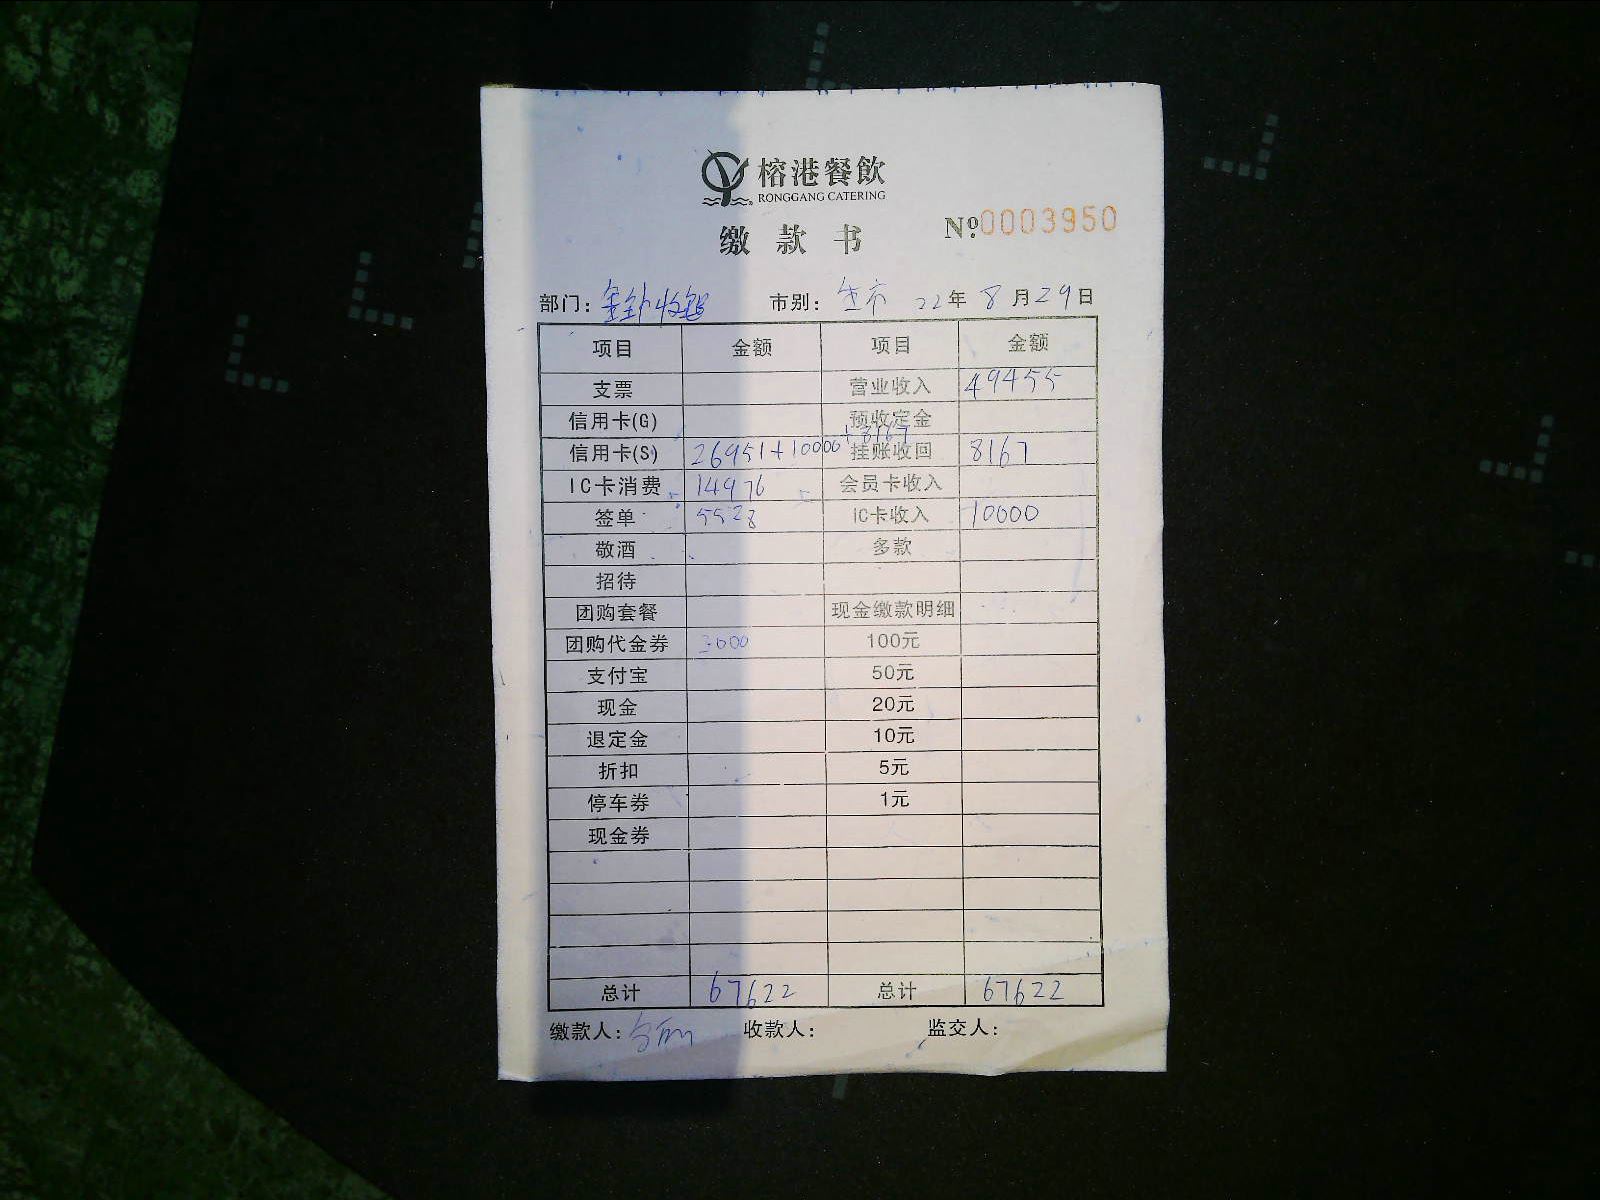 榕港餐飲
RONGGANG CATERING
缴款书 Nº:0003950
部门: 市别: 22年8月29日
项目 金额 项目 金额
支票 营业收入 49455
信用卡(G) 预收定金
信用卡(S) 26951+10000+8167 挂账收回 8167
IC卡消费 14976 会员卡收入
签单 5528 IC卡收入 10000
敬酒 多款
招待
团购套餐 现金缴款明细
团购代金券 100元
支付宝 50元
现金 20元
退定金 10元
折扣 5元
停车券 1元
现金券
总计 67622 总计 67622
缴款人: 收款人: 监交人: